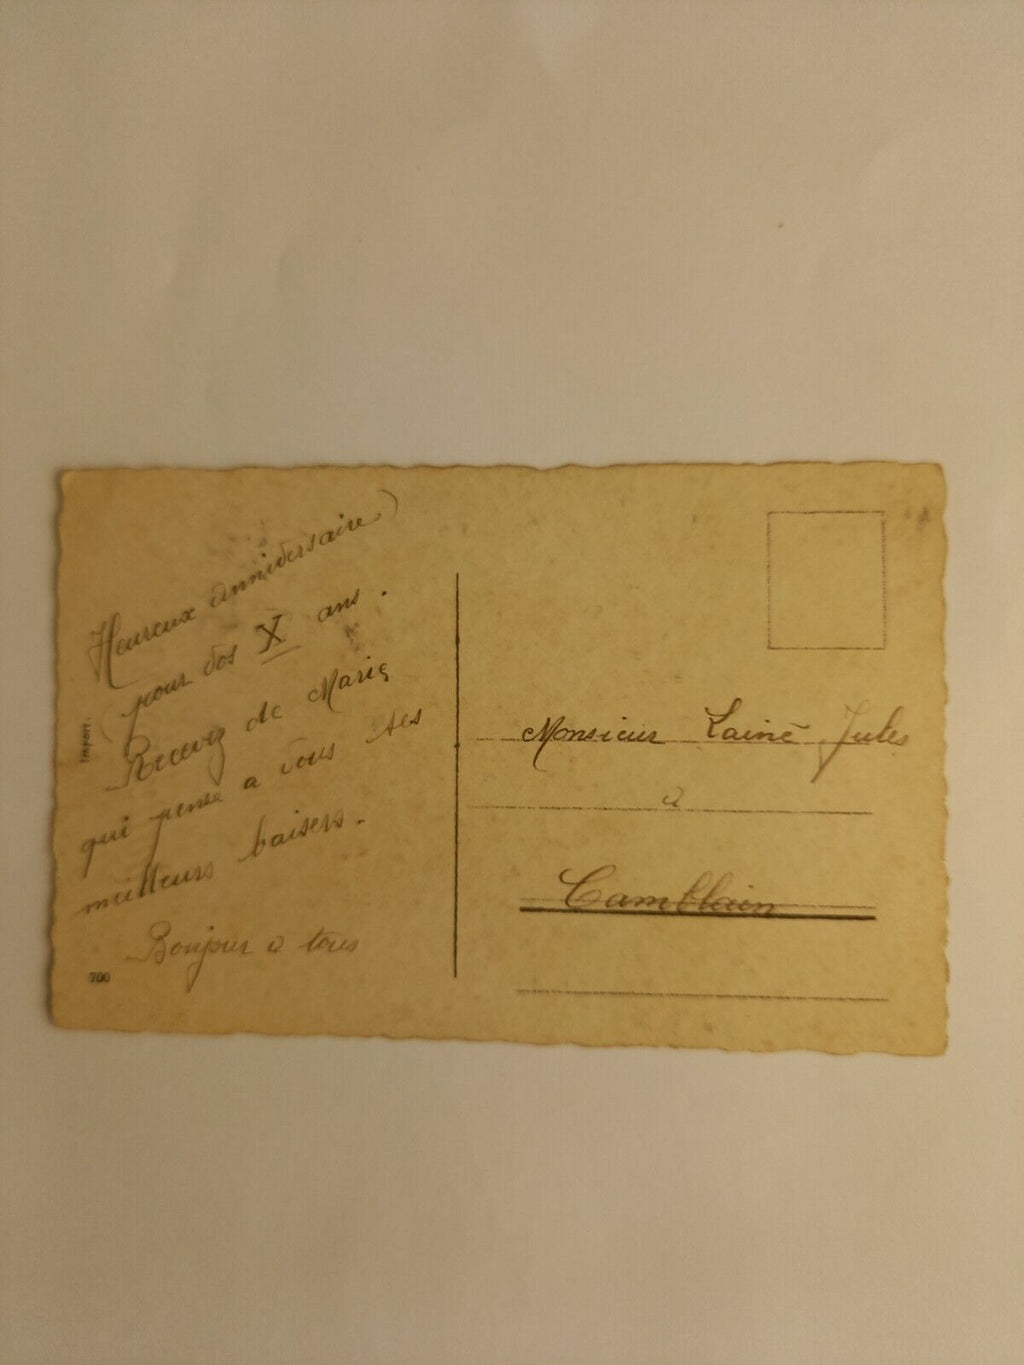 Heureux anniversaire
pour vos X ans.
Recevez de Marie
qui pense a vous ses
meilleurs baisers.
Bonjour a tous
Import.
700
Monsieur Lainé Jules
à
Camblain